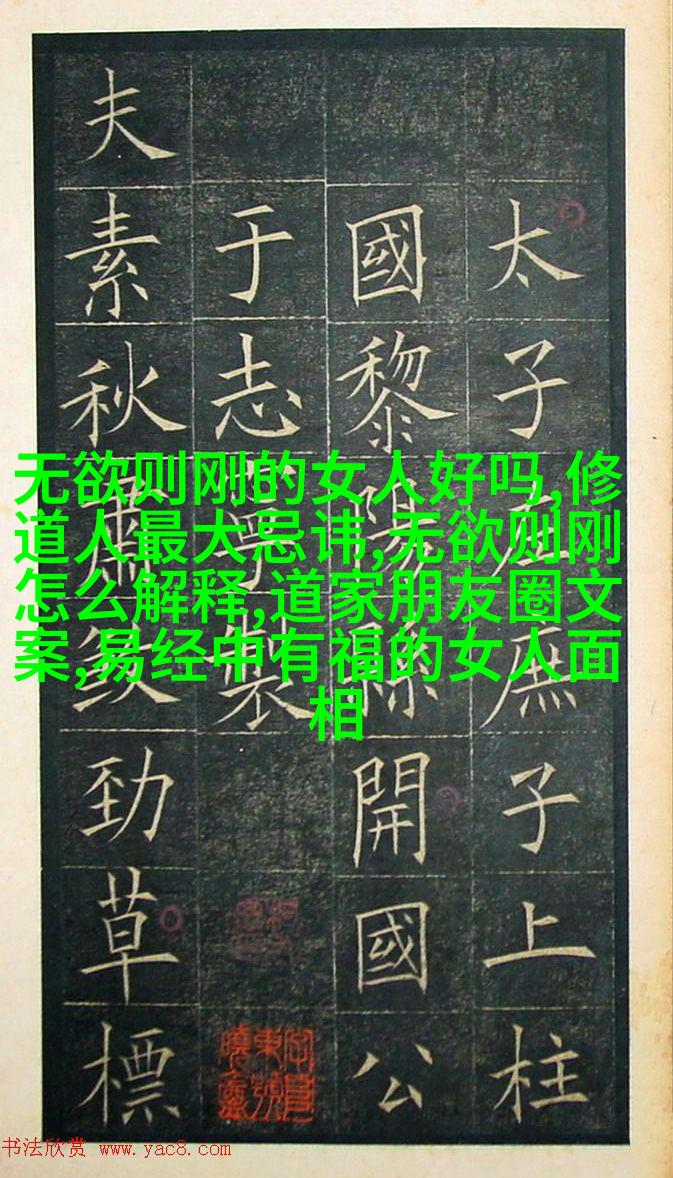 太子左庶子上柱
國黎陽縣開國公
于志寧製
夫素秋肅煞勁草標
无欲则刚的女人好吗,修
道人最大忌讳,无欲则刚
怎么解释,道家朋友圈文
案,易经中有福的女人面
相
书法欣赏 www.yac8.com